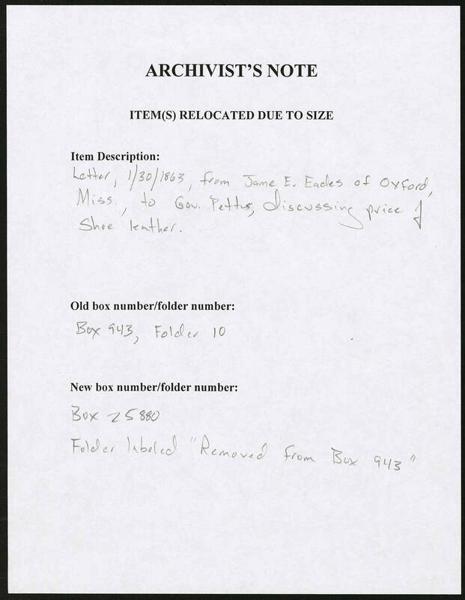 ARCHIVIST'S NOTE
ITEM(S) RELOCATED DUE TO SIZE
Item Description:
Letter, 1/30/1863, from Jame E. Eades of Oxford,
Miss., to Gov. Pettus, discussing price of
Shoe leather.
Old box number/folder number:
Box 943, Folder 10
New box number/folder number:
Box 25880
Folder labeled "Removed from Box 943"